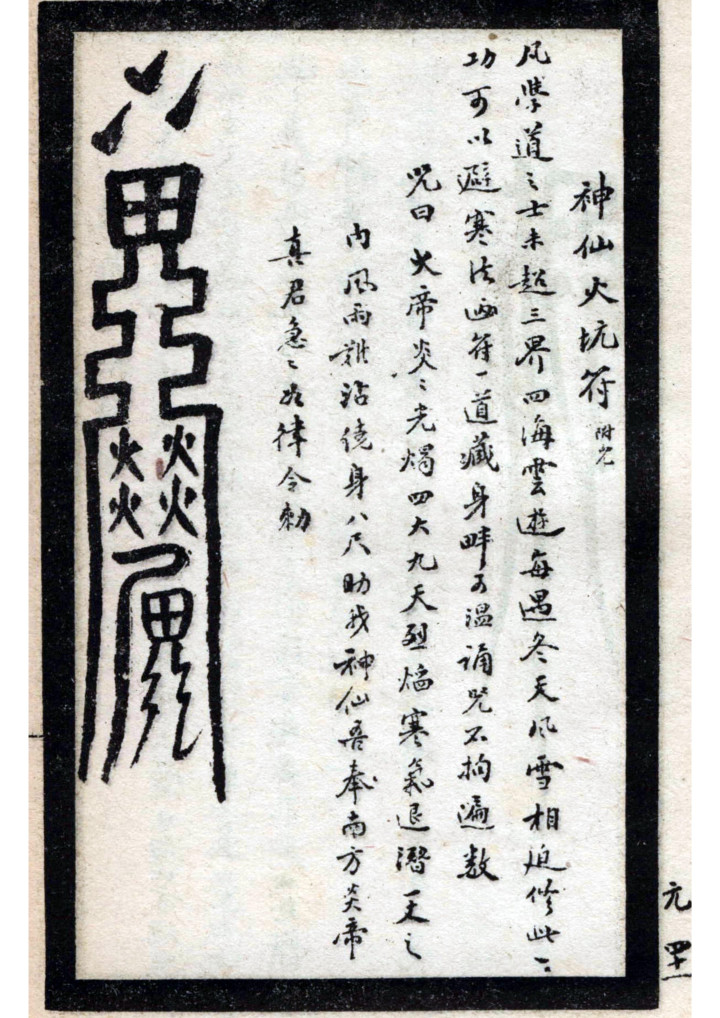 神仙火坑符 附咒
凡學道之士未超三界四海雲遊每遇冬天風雪相迫修此一
功可以避寒法画符一道藏身畔可溫誦咒不拘遍数
咒曰火帝炎〻光燭四大九天烈焰寒氣退潛一丈之
內風雨難沾繞身八尺助我神仙吾奉南方炎帝
真君急〻如律令勅
元